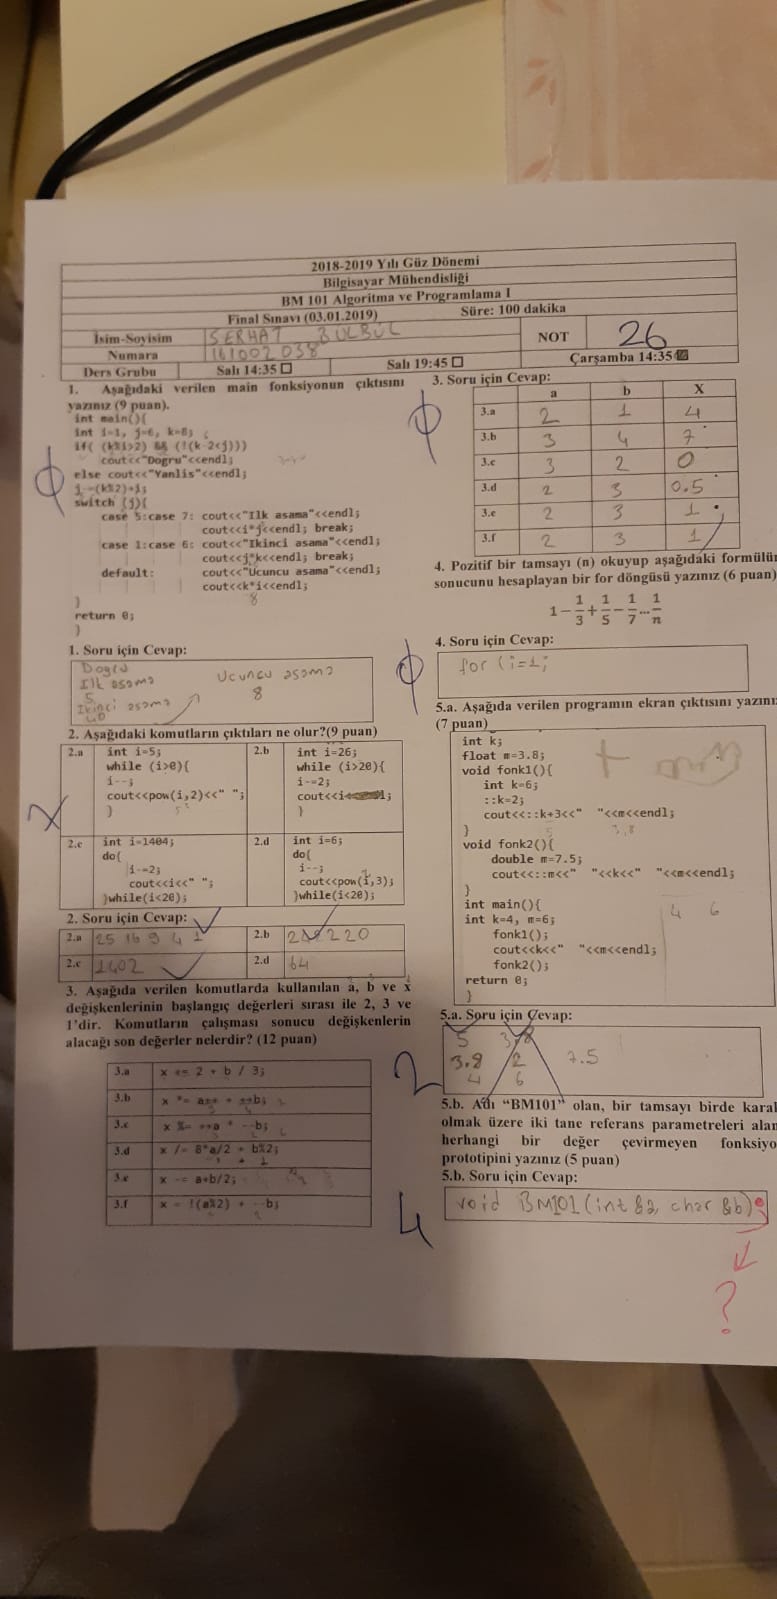 2018-2019 Yılı Güz Dönemi
Bilgisayar Mühendisliği
BM 101 Algoritma ve Programlama I
Final Sınavı (03.01.2019) Süre: 100 dakika
İsim-Soyisim SERHAT BÜLBÜL NOT 26
Numara 161002038
Ders Grubu Salı 14:35 Salı 19:45 Çarşamba 14:35
1. Aşağıdaki verilen main fonksiyonun çıktısını
yazınız (9 puan).
int main(){
int i=1, j=6, k=8;
if( (k%i>2) && (!(k-2<j)))
cout<<"Dogru"<<endl;
else cout<<"Yanlis"<<endl;
j-=(k%2)+i;
switch (j){
case 5:case 7: cout<<"Ilk asama"<<endl;
cout<<i*j<<endl; break;
case 1:case 6: cout<<"Ikinci asama"<<endl;
cout<<j*k<<endl; break;
default: cout<<"Ucuncu asama"<<endl;
cout<<k*i<<endl;
8
}
return 0;
}
1. Soru için Cevap:
Dogru
Ilk asama
5
Ikinci asama
40
Ucuncu asama
8
2. Aşağıdaki komutların çıktıları ne olur?(9 puan)
2.a int i=5;
while (i>0){
i--;
cout<<pow(i,2)<<" ";
}
2.b int i=26;
while (i>20){
i-=2;
cout<<i
}
2.c int i=1404;
do{
i-=2;
cout<<i<<" ";
}while(i<20);
2.d int i=6;
do{
i--;
cout<<pow(i,3);
}while(i<20);
2. Soru için Cevap:
2.a 25 16 9 4 1 2.b
2.c 1402 2.d 64
3. Aşağıda verilen komutlarda kullanılan a, b ve x
değişkenlerinin başlangıç değerleri sırası ile 2, 3 ve
1'dir. Komutların çalışması sonucu değişkenlerin
alacağı son değerler nelerdir? (12 puan)
3.a x += 2 + b / 3;
3.b x *= a++ + ++b;
3.c x %= ++a * --b;
3.d x /= 8*a/2 + b%2;
3.e x -= a+b/2;
3.f x = !(a%2) + --b;
3. Soru için Cevap:
a b X
3.a 2 1 4
3.b 3 4 7
3.c 3 2 0
3.d 2 3 0.5
3.e 2 3 1
3.f 2 3 1
4. Pozitif bir tamsayı (n) okuyup aşağıdaki formülün
sonucunu hesaplayan bir for döngüsü yazınız (6 puan)
1-1/3+1/5-1/7...1/n
4. Soru için Cevap:
for (i=1;
5.a. Aşağıda verilen programın ekran çıktısını yazını
(7 puan)
int k;
float m=3.8;
void fonk1(){
int k=6;
::k=2;
cout<<::k+3<<" "<<m<<endl;
}
5 3,8
void fonk2(){
double m=7.5;
cout<<::m<<" "<<k<<" "<<m<<endl;
}
int main(){
int k=4, m=6;
4 6
fonk1();
cout<<k<<" "<<m<<endl;
fonk2();
return 0;
}
5.a. Soru için Cevap:
5 3,8
3.8 2 7.5
4 6
2
5.b. Adı "BM101" olan, bir tamsayı birde karak
olmak üzere iki tane referans parametreleri alan
herhangi bir değer çevirmeyen fonksiyo
prototipini yazınız (5 puan)
5.b. Soru için Cevap:
void BM101(int &a, char &b);
4
?